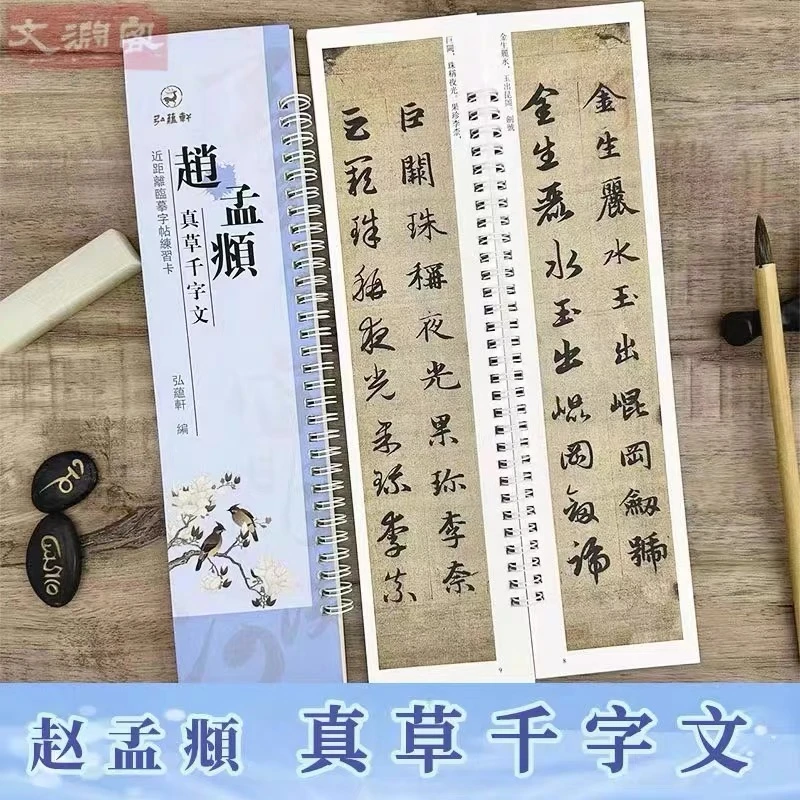 弘蘊軒
趙孟頫
真草千字文
近距離臨摹字帖練習卡
弘蘊軒 編
金生麗水，玉出崑岡。劍號
金生麗水玉出崐岡劒號
金生麗水玉出崐岡劒號
8
巨闕，珠稱夜光。果珍李柰，
巨闕珠稱夜光果珍李柰
巨闕珠稱夜光果珍李柰
9
赵孟頫 真草千字文